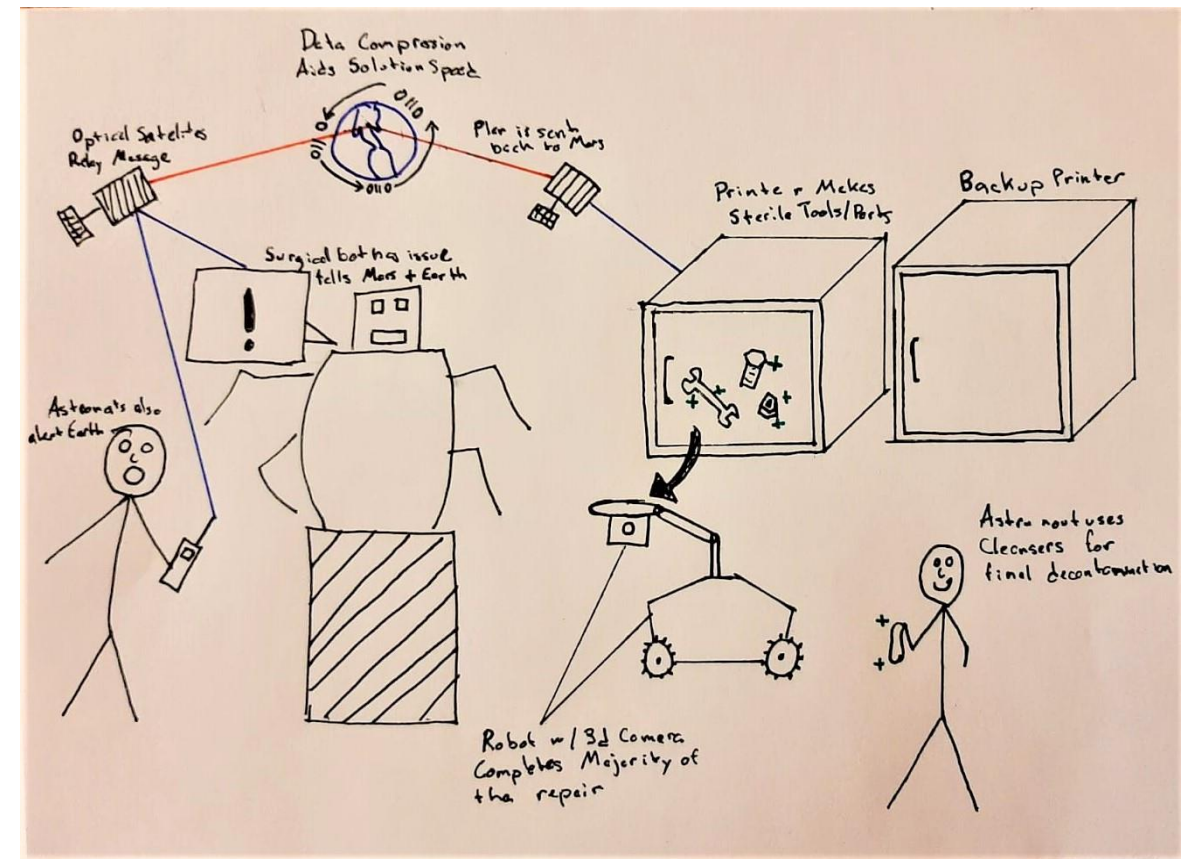 Data Compression
Aids Solution Speed
0110
0110
0110
Optical Satelites
Relay Message
Plan is sent
back to Mars
Printer Makes
Sterile Tools/Parts
Backup Printer
Surgical bot has issue
tells Mars + Earth
!
Astronauts also
alert Earth
Astronaut uses
Cleansers for
final decontamination
Robot w/ 3d Camera
Completes Majority of
the repair